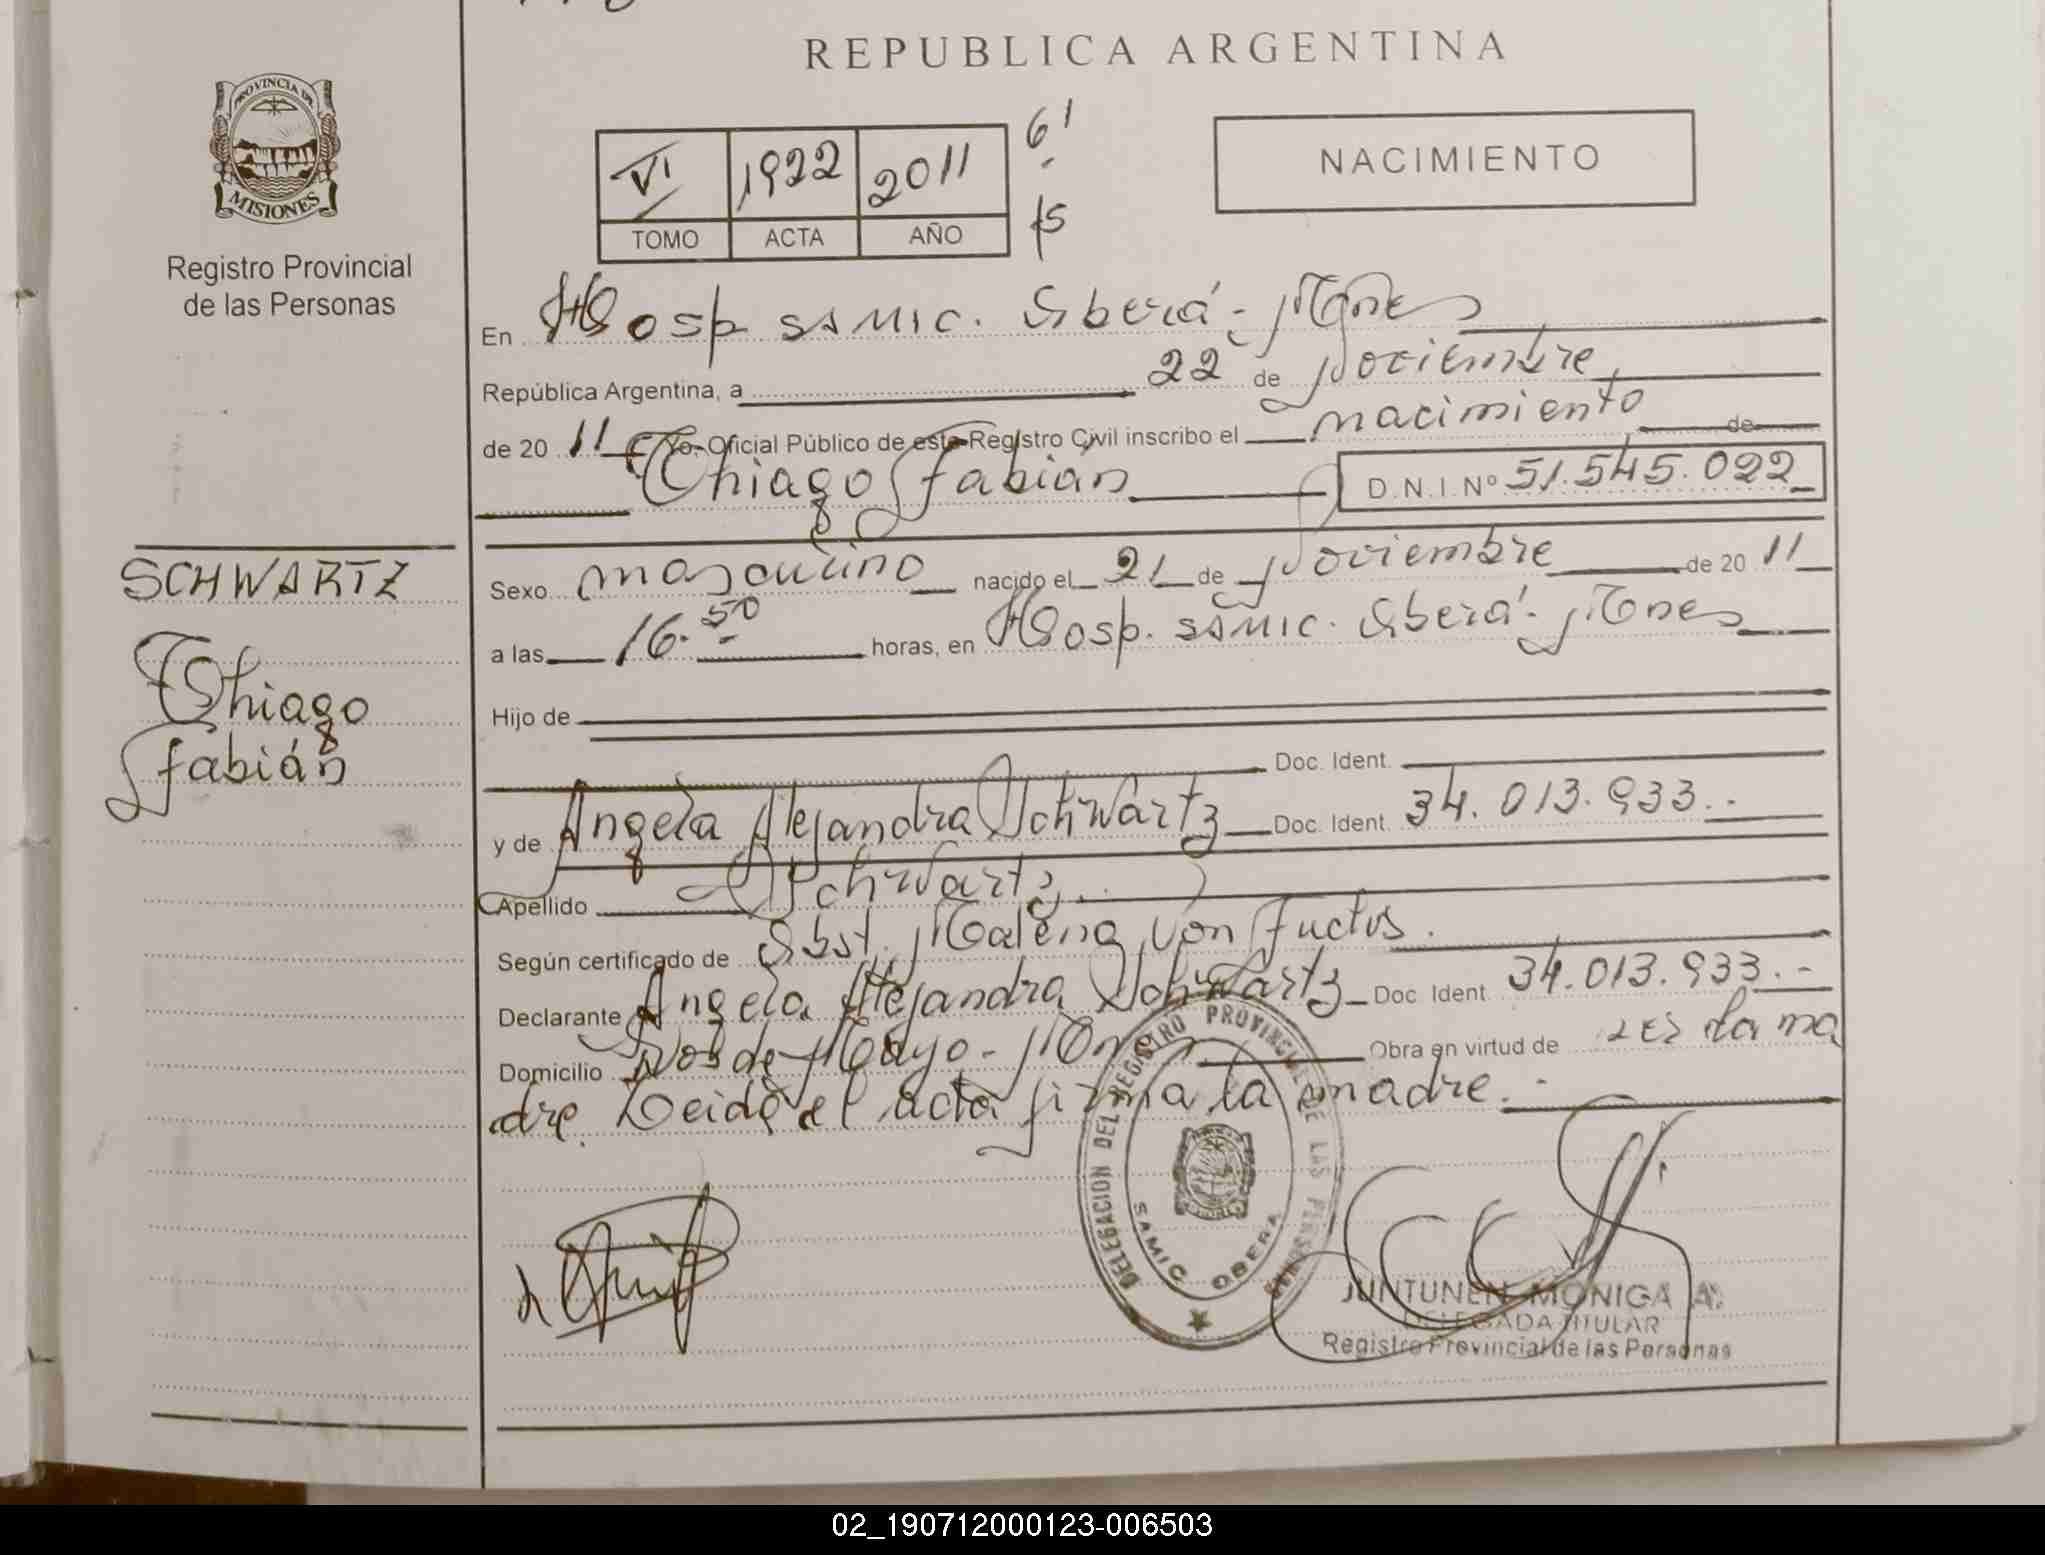 REPUBLICA ARGENTINA
PROVINCIA DE
MISIONES
Registro Provincial
de las Personas
VI 1922 2011
TOMO ACTA AÑO
61
15
NACIMIENTO
En Hosp SAMIC. Oberá - Mnes
República Argentina, a 22 de Noviembre
de 20 11 Yo, Oficial Público de este Registro Civil inscribo el nacimiento de
Thiago Fabián D.N.I. Nº 51.545.022
SCHWARTZ
Thiago
Fabián
Sexo masculino nacido el 21 de Noviembre de 20 11
a las 16.50 horas, en Hosp. SAMIC. Oberá - Mnes
Hijo de
Doc. Ident.
y de Angela Alejandra Schwartz Doc. Ident. 34.013.933.-
Apellido Schwartz
Según certificado de Obst. Malena Von
Declarante Angela Alejandra Schwartz Doc Ident 34.013.933.-
Domicilio de Mayo - Mnes Obra en virtud de ser la ma
dre. Leida el acta firma la madre.-
DELEGACION DEL REGISTRO PROVINCIAL DE LAS PERSONAS
SAMIC OBERA
JUNTUNEN MONICA A.
DELEGADA TITULAR
Registro Provincial de las Personas
02_190712000123-006503